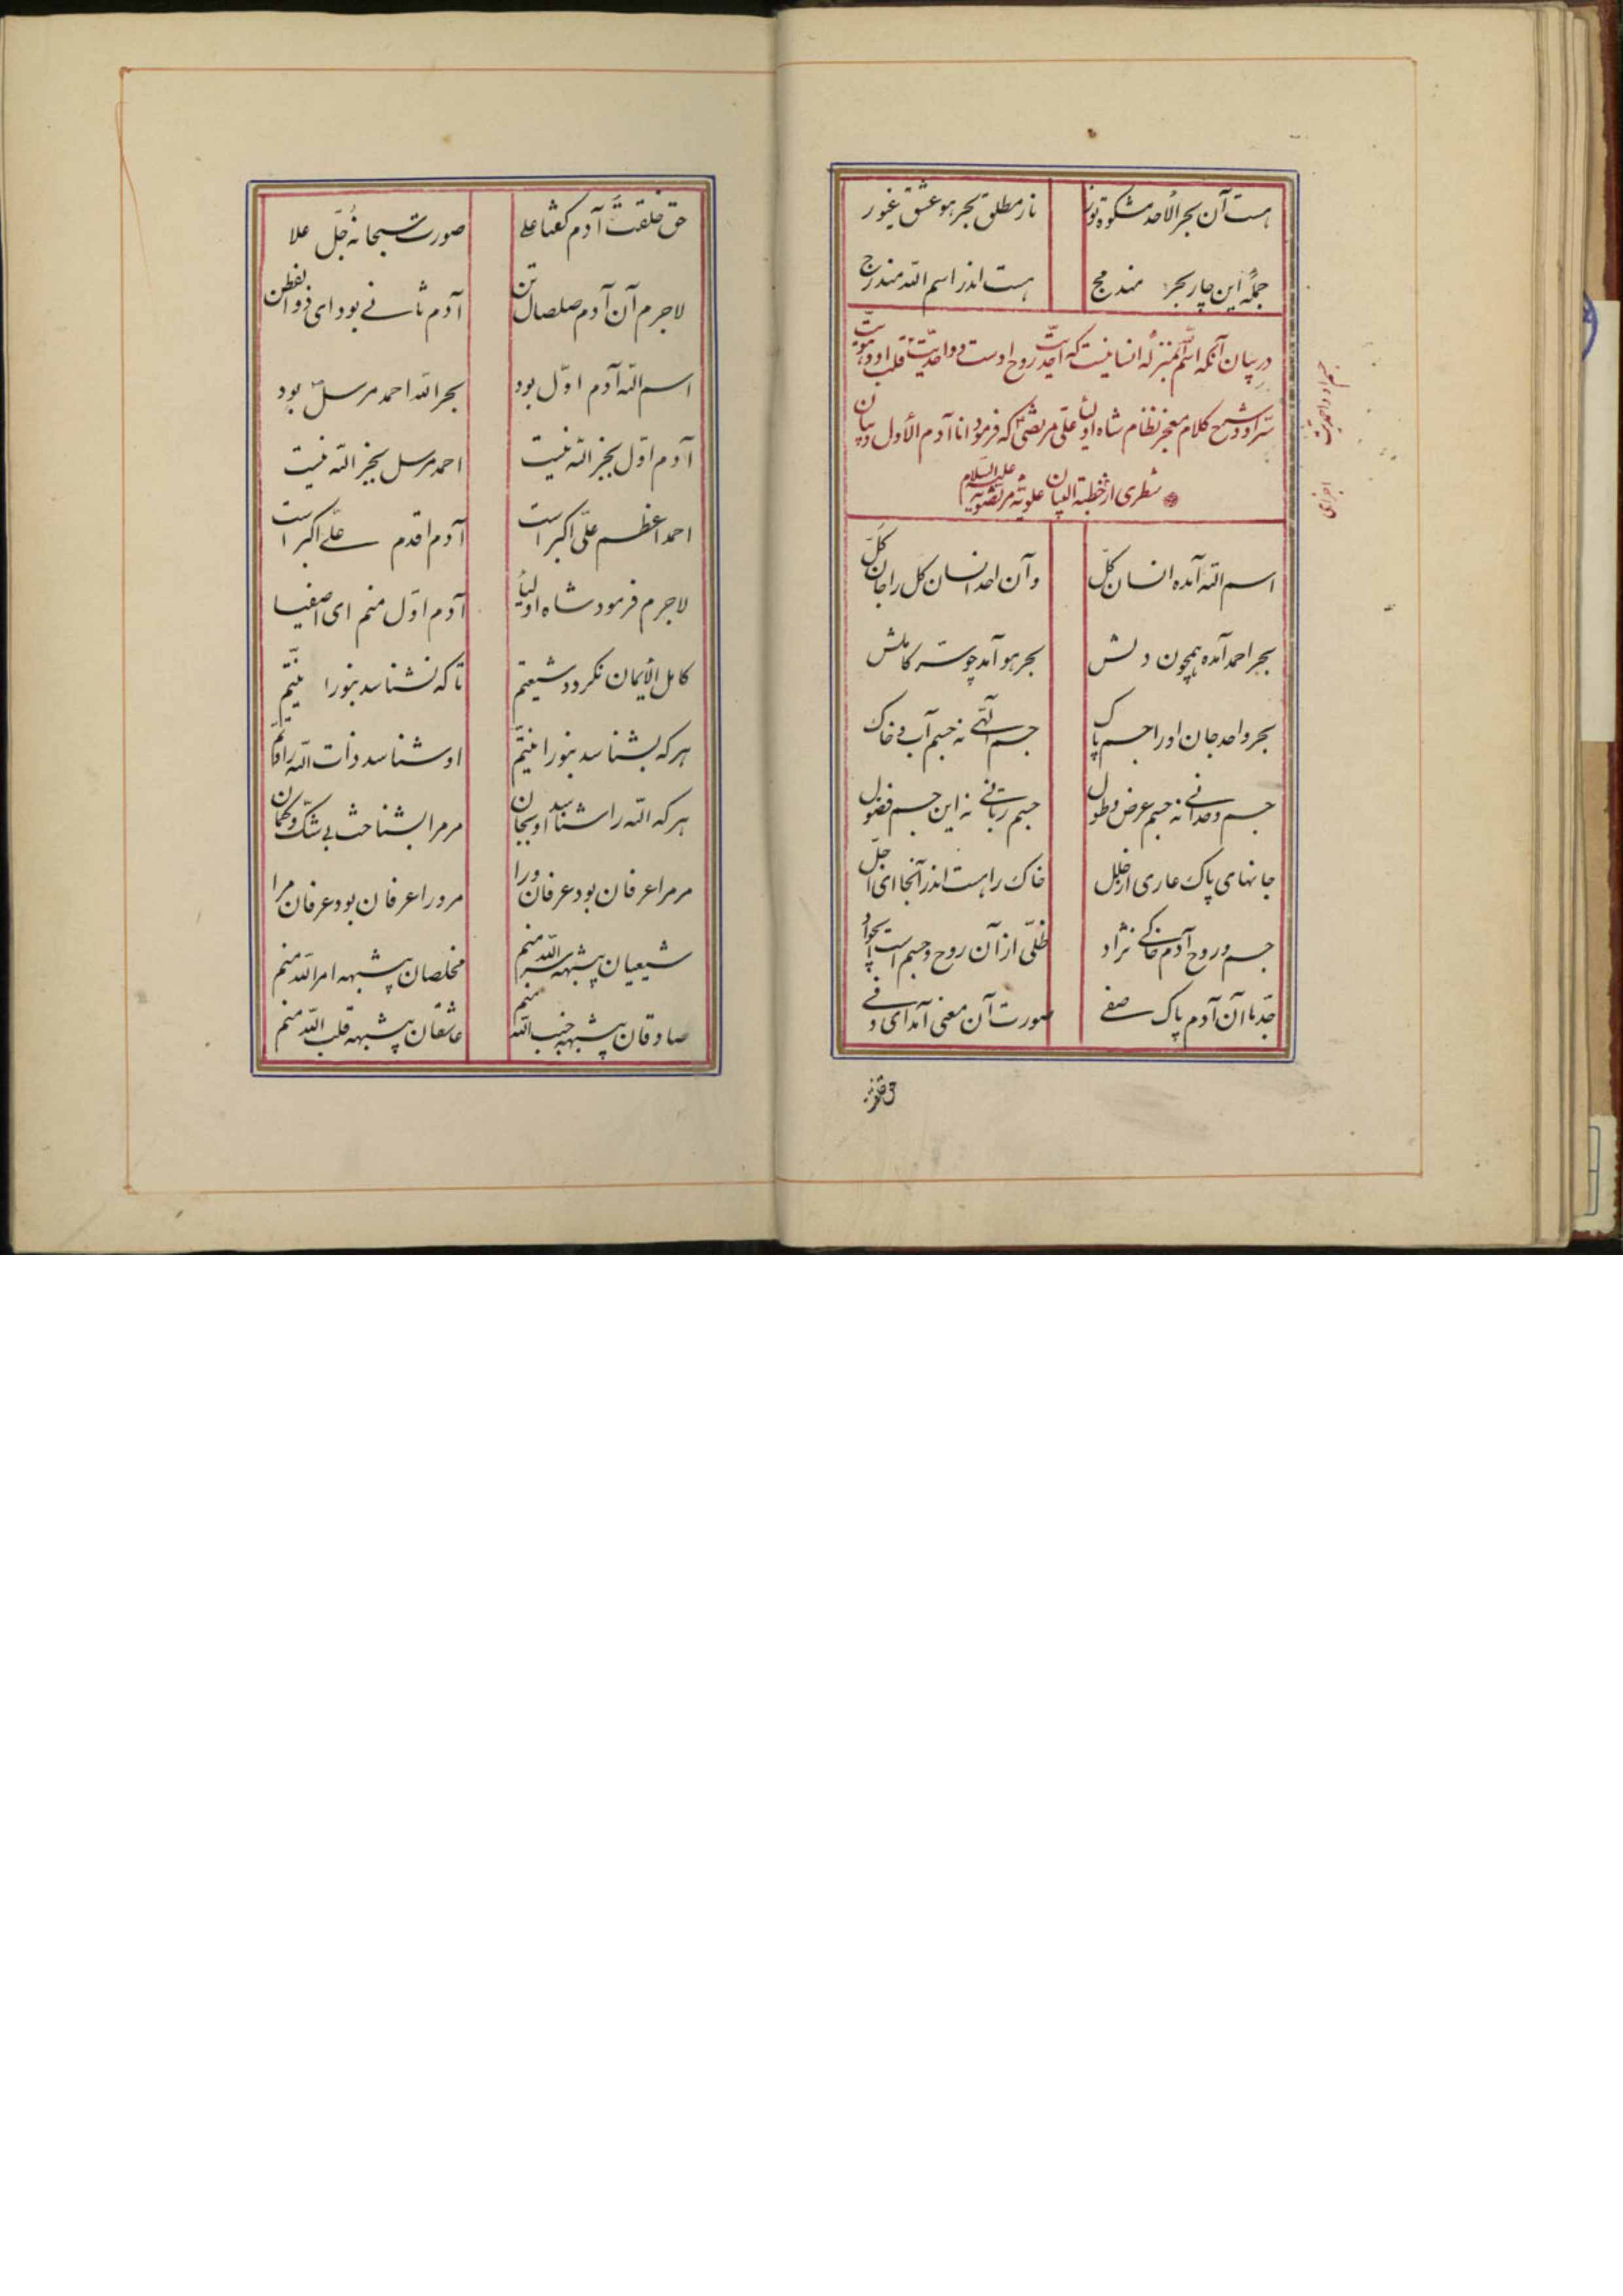 هست آن بحر الأحد مشکوة نور    نار مطلق بحر هو عشق غیور
جملهٔ این چار بحر مندمج    هست اندر اسم الله مندرج
در بیان آنکه اسم الله بمنزلهٔ انسانیست که احدیّت روح اوست و واحدیّت قلب او و هویّت
سرّ او و شرح کلام معجز نظام شاه اولیا علی مرتضی که فرمود انا آدم الأول و بیان
شطری از خطبة البیان علویّهٔ مرتضویّه علیه السلام
جسم او و احمدیّت
اسم الله آمده انسان کلّ    و آن احد انسان کل را جان کلّ
بحر احمد آمده همچون دلش    بحر هو آمد چو سرّ کاملش
بحر واحد جان او را جسم پاک    جسم الّهی نه جسم آب و خاک
جسم وحدانی نه جسم عرض و طول    جسم ربّانی نه این جسم فضول
جانهای پاک عاری از خلل    خاک راهست اندر آنجا ای اجلّ
جسم و روح آدم خاکی نژاد    ظلّی از آن روح و جسم است ای جواد
جدّ ما آن آدم پاک صفی    صورت آن معنی آمد ای وفی
حق خلقت
حق خلقت آدم گفتا علی    صورت سبحانه جلّ علا
لاجرم آن آدم صلصال تن    آدم ثانی بود ای ذو الفطن
اسم الله آدم اوّل بود    بحر الله احمد مرسل بود
آدم اوّل بجز الله نیست    احمد مرسل بجز الله نیست
احمد اعظم علیّ اکبر است    آدم اقدم علیّ اکبر است
لاجرم فرمود شاه اولیا    آدم اوّل منم ای اصفیا
کامل الأیمان نگردد شیعتم    تا که نشناسد بنورانیّتم
هر که بشناسد بنورانیّتم    او شناسد ذات الله را
هر که الله را شناسد او بجان    مر مرا بشناخت بی شکّ و گمان
مر مرا عرفان بود عرفان ورا    مر ورا عرفان بود عرفان مرا
شیعیان بیشبهه سرّ الله منم    مخلصان بیشبهه امر الله منم
صادقان بیشبهه جنب الله منم    عاشقان بیشبهه قلب الله منم